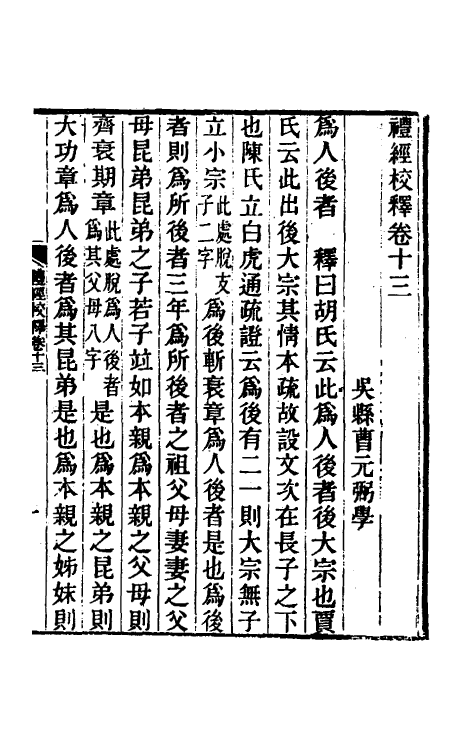 禮經校釋卷十三
吳縣曹元弼學
爲人後者　釋曰胡氏云此爲人後者後大宗也賈
氏云此出後大宗其情本疏故設文次在長子之下
也陳氏立白虎通疏證云爲後有二一則大宗無子
立小宗此處脫支子二字爲後斬衰章爲人後者是也爲後
者則爲所後者三年爲所後者之祖父母妻妻之父
母昆弟昆弟之子若子竝如本親爲本親之父母則
齊衰期章此處脫爲人後者爲其父母八字是也爲本親之昆弟則
大功章爲人後者爲其昆弟是也爲本親之姊妹則
禮經校釋卷十三
一